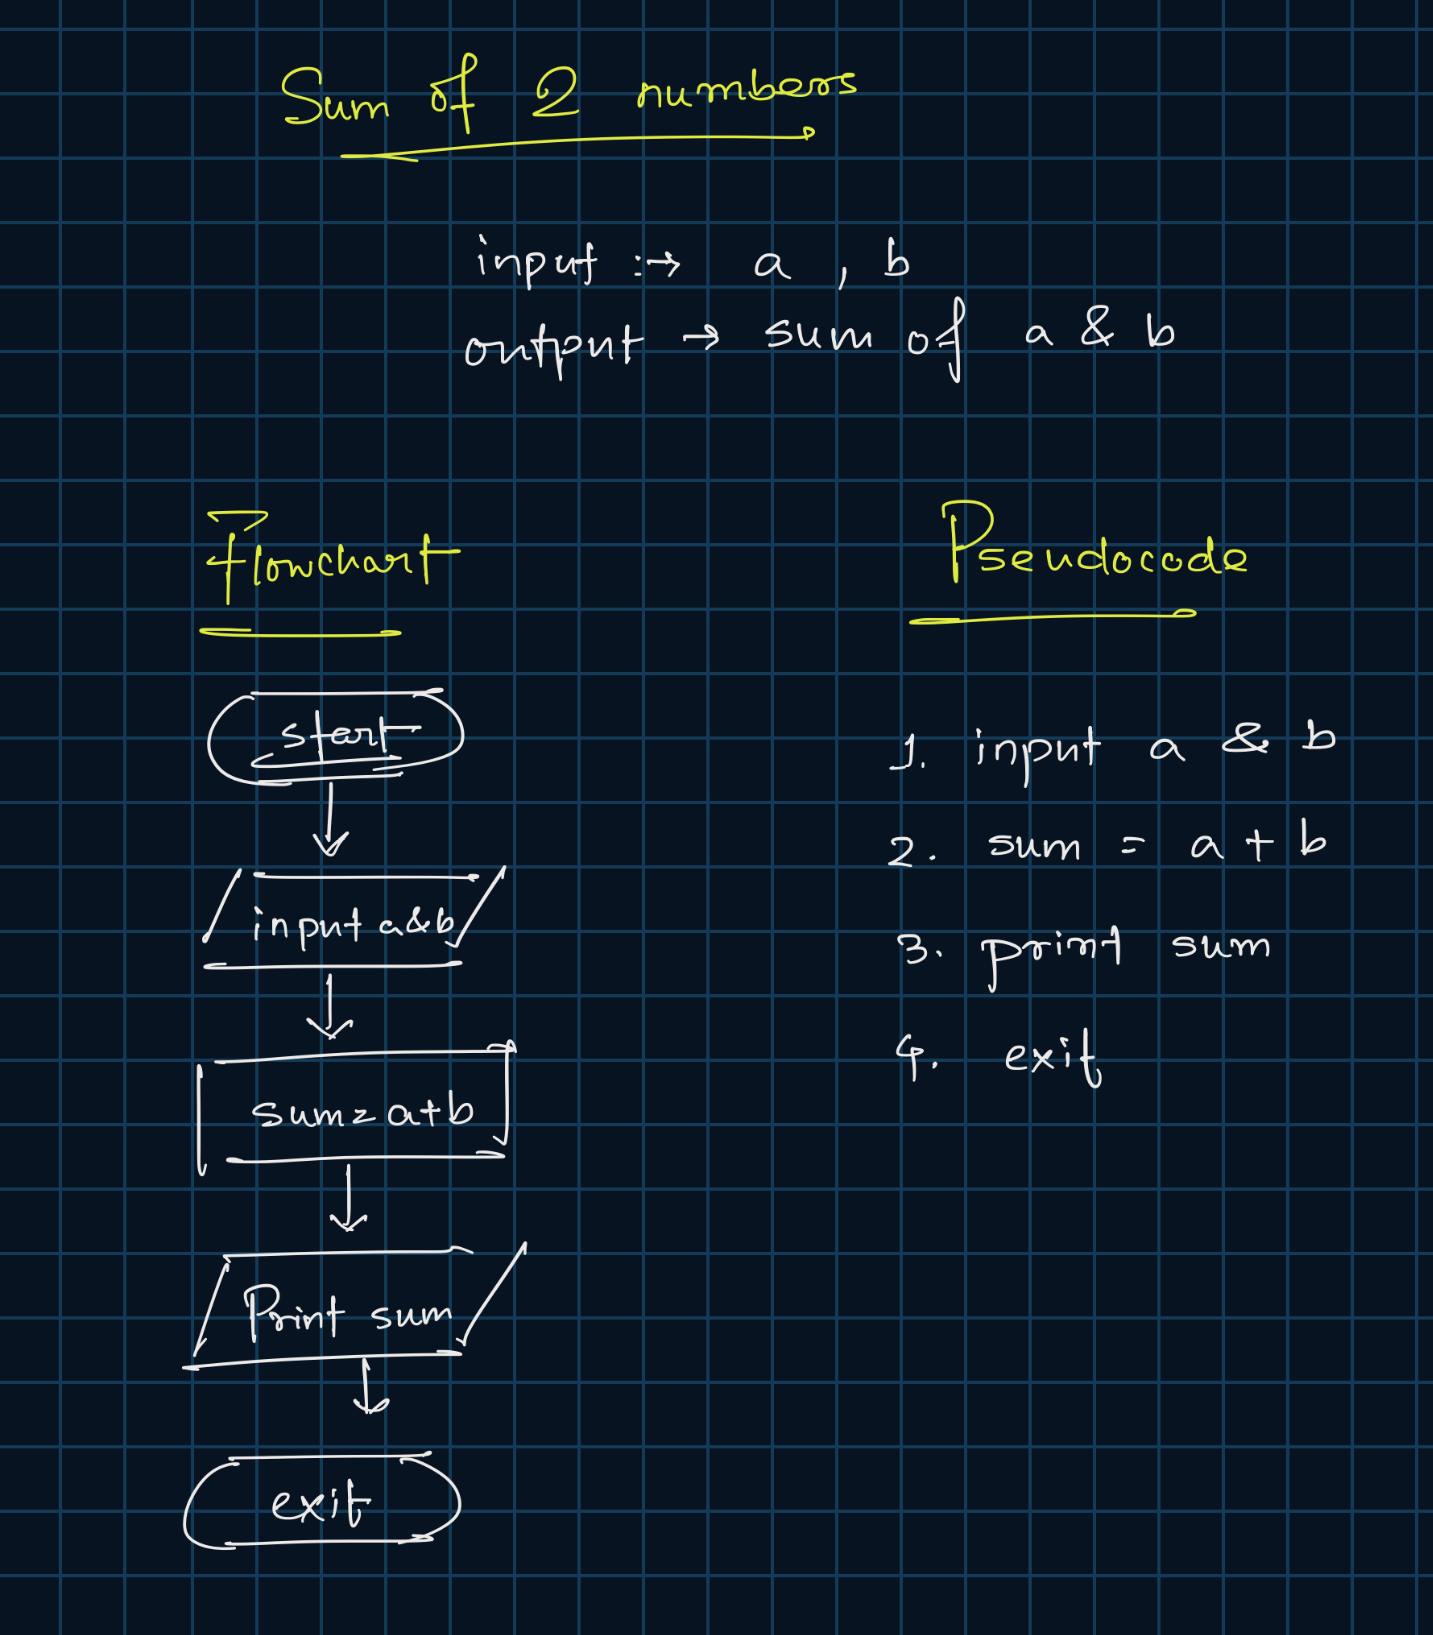 Sum of 2 numbers
input :→ a , b
output → sum of a & b
Flowchart
start
input a&b
sum = a+b
Print sum
exit
Pseudocode
1. input a & b
2. sum = a + b
3. print sum
4. exit